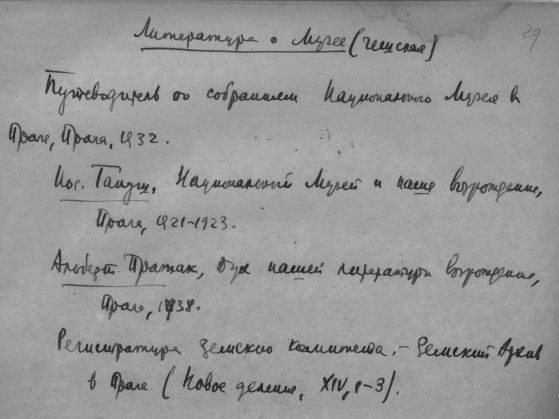 29
Литература о Музее (чешская)
Путеводитель по собраниям Национального Музея в
Праге, Прага, 1932.
Иос. Гануш, Национальный Музей и наше возрождение,
Прага, 1921-1923.
Альберт Пражак, Дух нашей литературы возрождения,
Прага, 1938.
Регистратура Земского комитета. - Земский Архив
в Праге (Новое деление, XIV, 1-3).